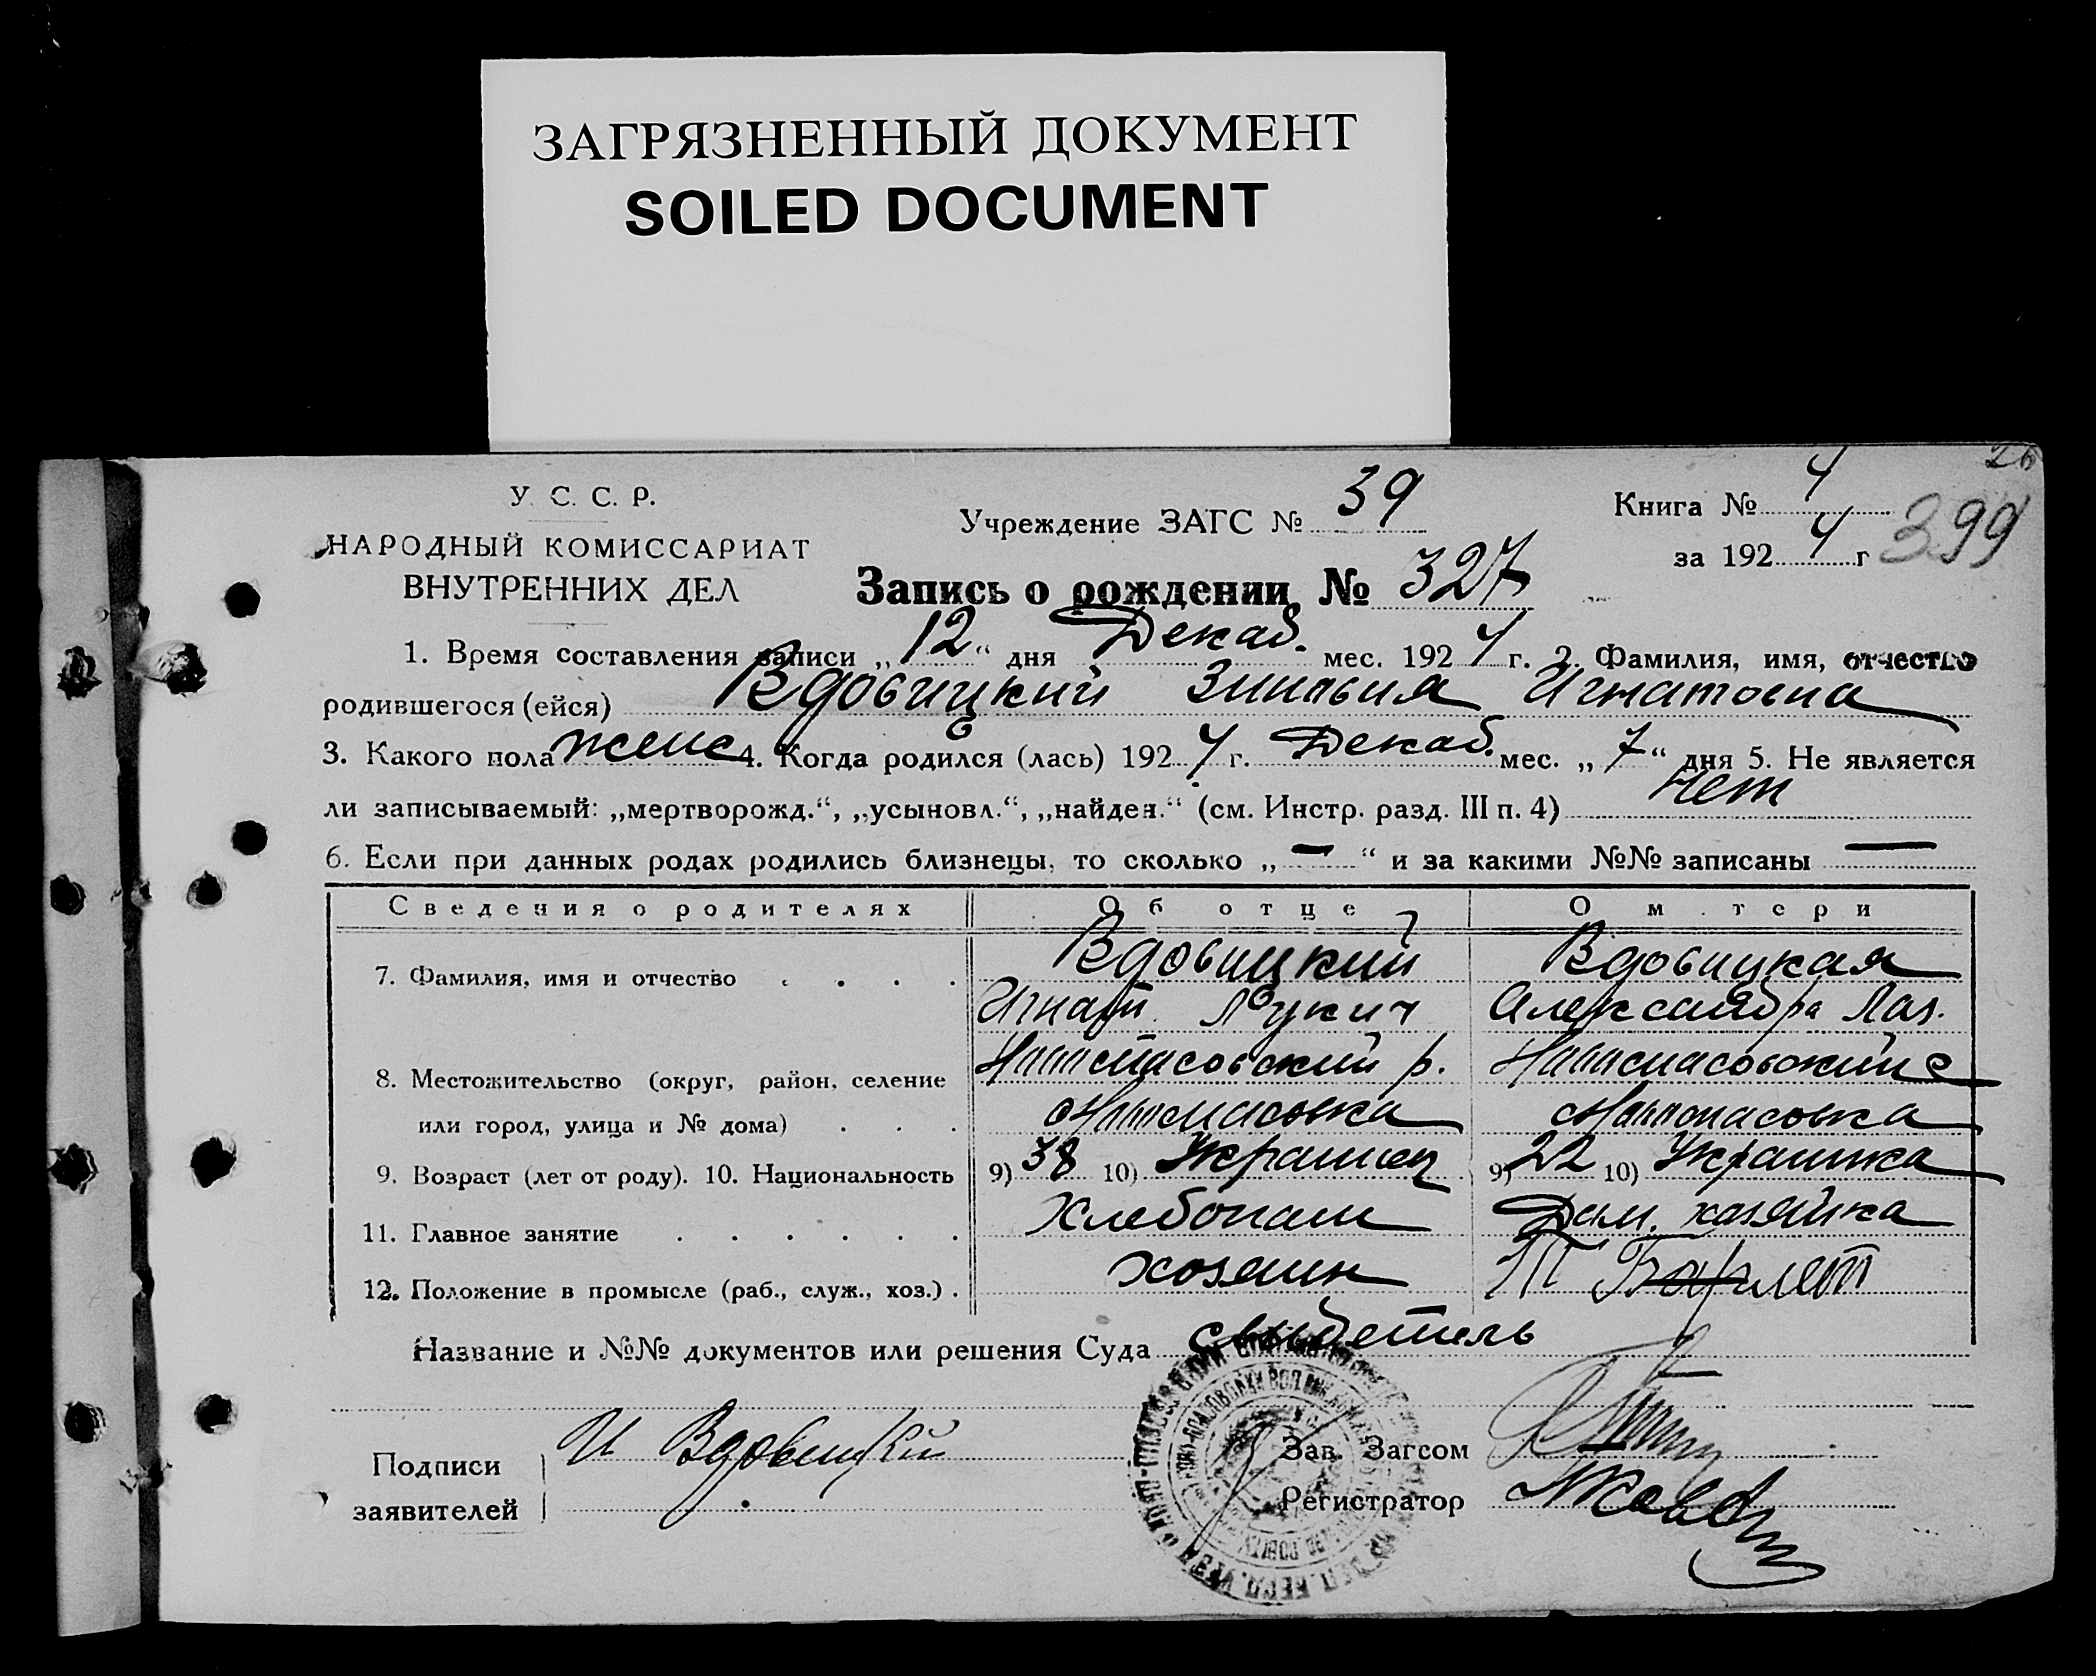 ЗАГРЯЗНЕННЫЙ ДОКУМЕНТ
SOILED DOCUMENT
26
У. С. С. Р.
НАРОДНЫЙ КОМИССАРИАТ
ВНУТРЕННИХ ДЕЛ
Учреждение ЗАГС № 39
Книга № 4
за 192 4 г 399
Запись о рождении № 327
1. Время составления записи „12“ дня Декаб. мес. 192 4 г. 2. Фамилия, имя, отчество
родившегося (ейся) Вдовицкий Игнатовна
3. Какого пола женс 4. Когда родился (лась) 192 4 г. Декаб. мес. „7“ дня 5. Не является
ли записываемый: „мертворожд.“, „усыновл.“, „найден.“ (см. Инстр. разд. III п. 4) нет
6. Если при данных родах родились близнецы, то сколько „—“ и за какими №№ записаны —
Сведения о родителях Об отце О м тери
7. Фамилия, имя и отчество . . . . Вдовицкий Вдовицкая
Игнат Лукич Александра Лаз.
8. Местожительство (округ, район, селение р.
или город, улица и № дома) . . .
9. Возраст (лет от роду). 10. Национальность 9) 38 10) Украинец 9) 22 10) Украинка
11. Главное занятие . . . . . . Хлебопаш Дом. хозяйка
12. Положение в промысле (раб., служ., хоз.) . хозяин
Название и №№ документов или решения Суда
Подписи
заявителей
И Вдовицкий
Зав. Загсом
Регистратор